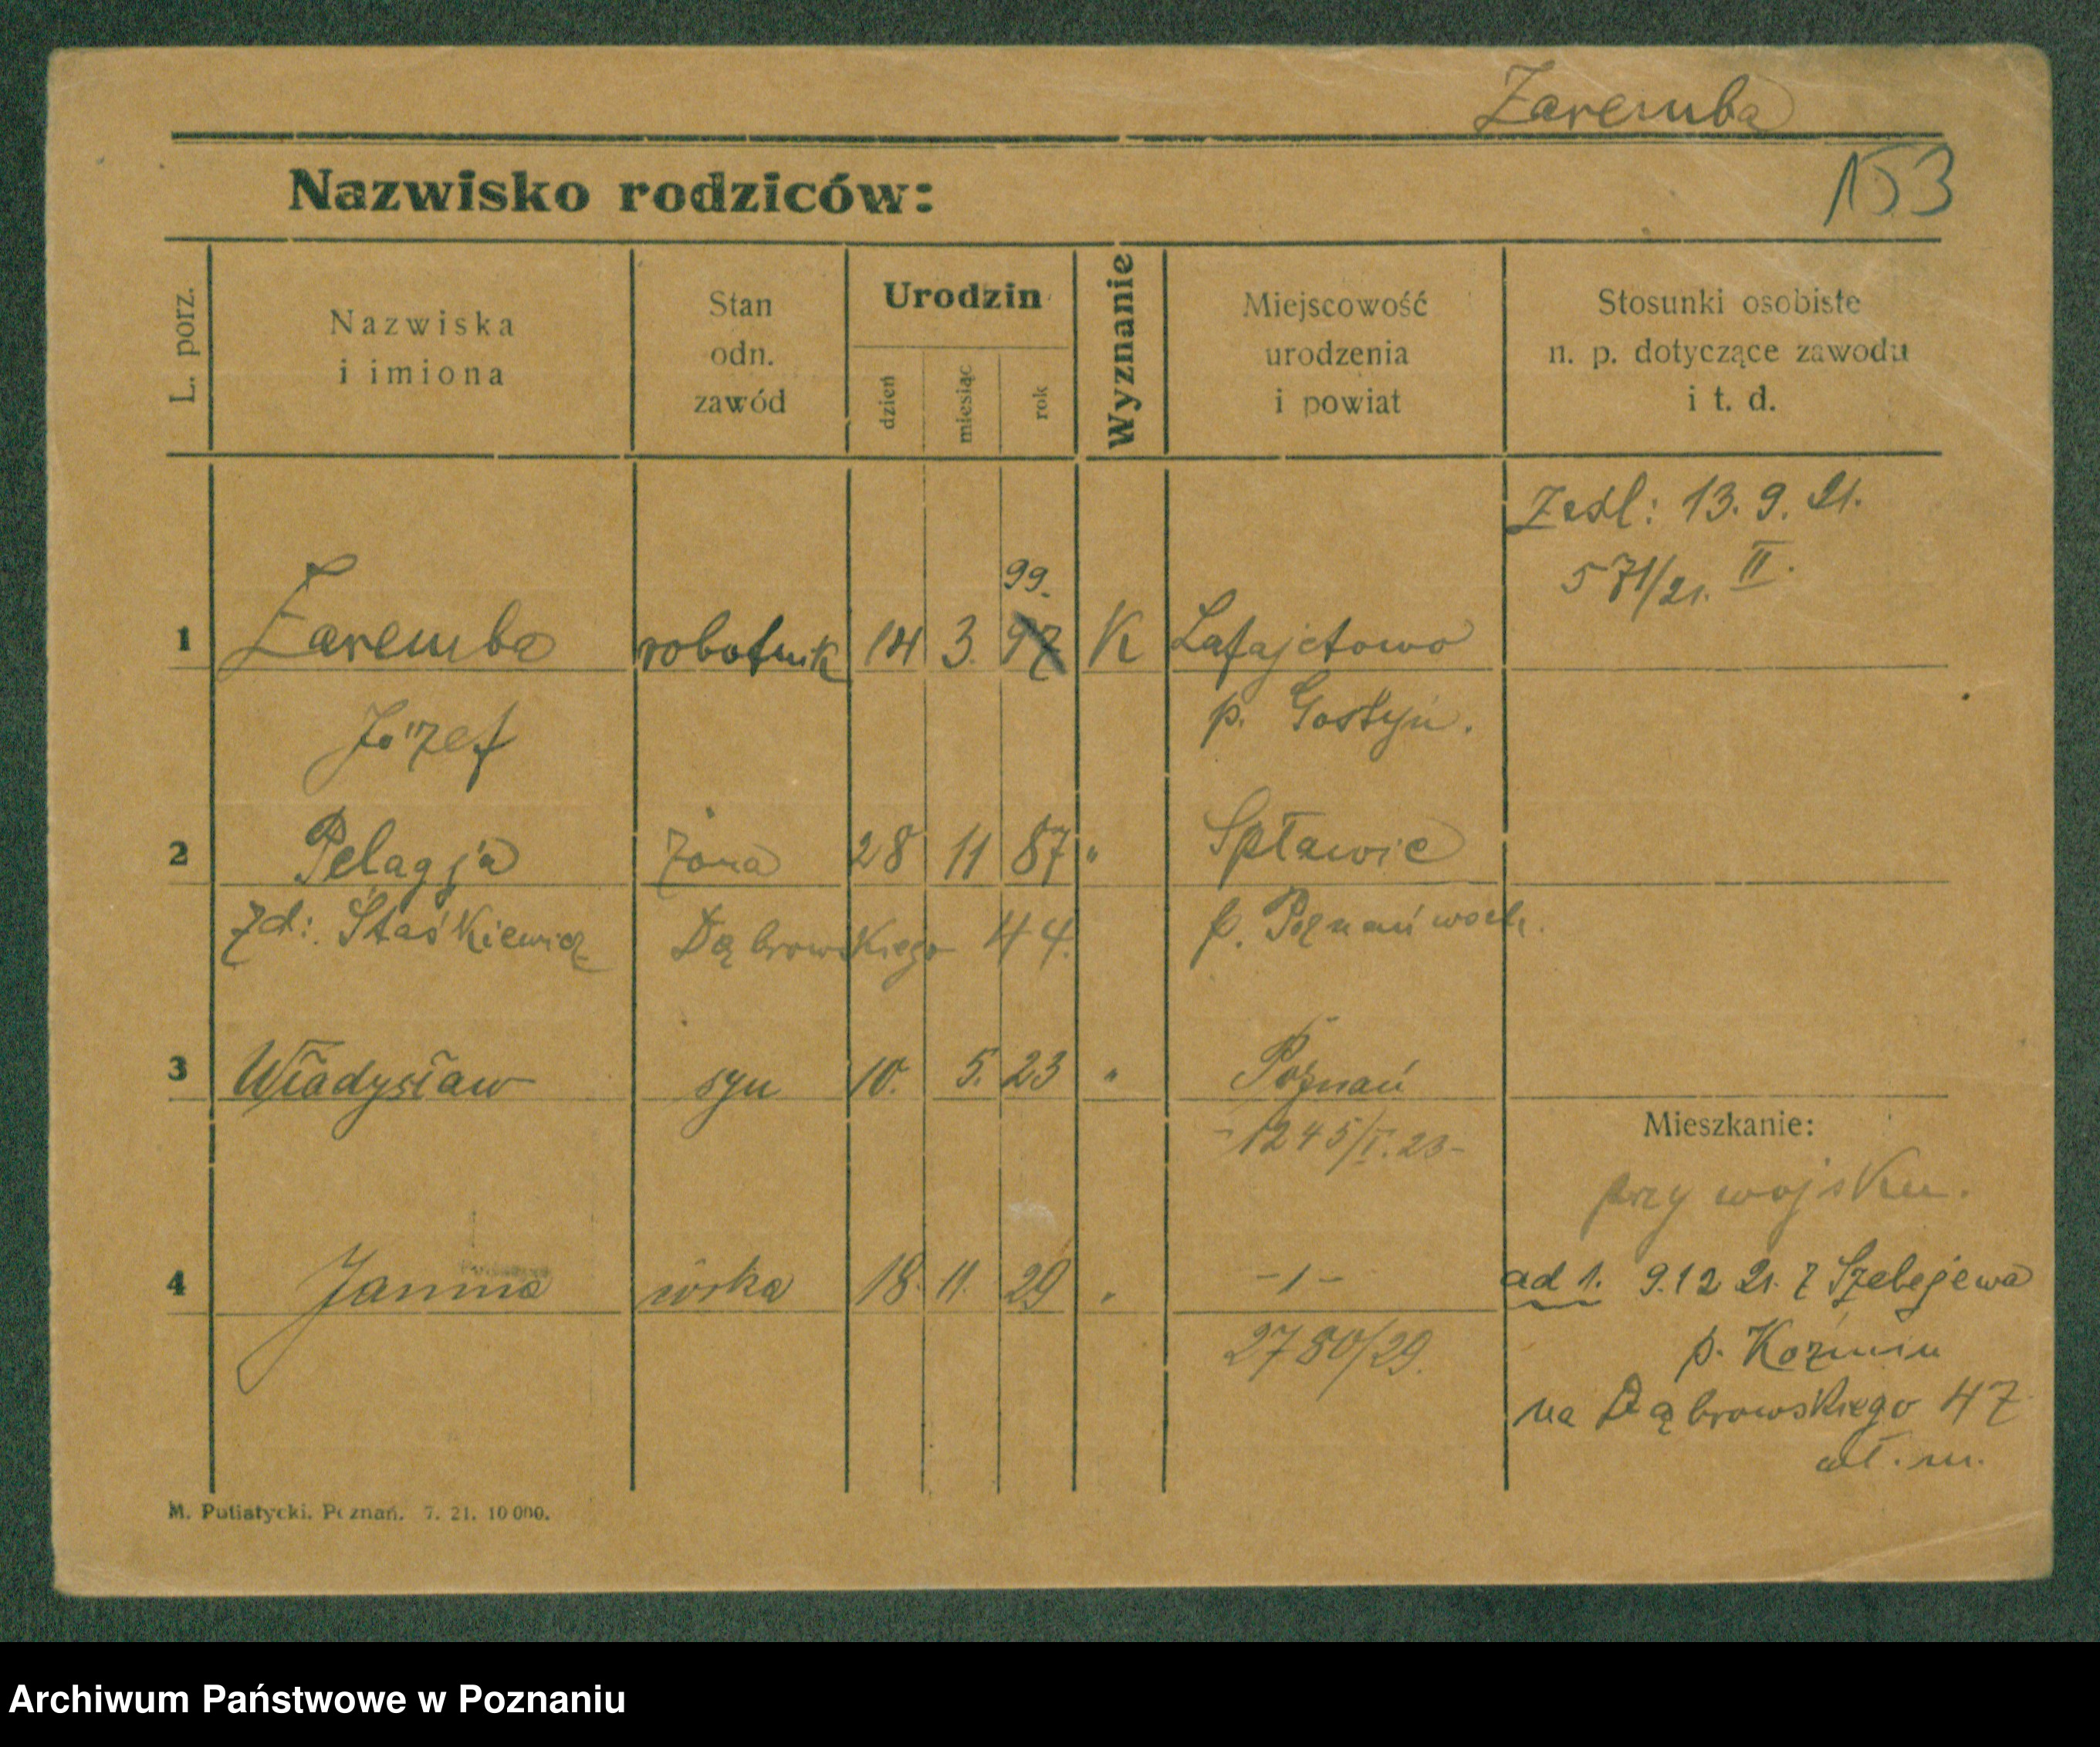 Zaremba
153
Nazwisko rodziców:
L. porz.
Nazwiska
i imiona
Stan
odn.
zawód
Urodzin
dzień
miesiąc
rok
Wyznanie
Miejscowość
urodzenia
i powiat
Stosunki osobiste
n. p. dotyczące zawodu
i t. d.
Zesl: 13. 9. 21.
571/21. II.
99.
1 Zaremba robotnik 14 3. 97 K Lafajetowo
Józef p. Gostyń.
2 Pelagja żona 28 11 87 " Spławie
zd: Staśkiewicz Dąbrowskiego 44. p. Poznań wsch.
3 Władysław syn 10. 5. 23 " Poznań
Mieszkanie:
-1245/V.23-
przy wojsku.
4 Janina córka 18. 11. 29 " -1-
ad 1. 9.12 21. z Szelejewa
2780/29.
p. Koźmin
na Dąbrowskiego 47
M. Putiatycki. Poznań. 7. 21. 10 000.
Archiwum Państwowe w Poznaniu